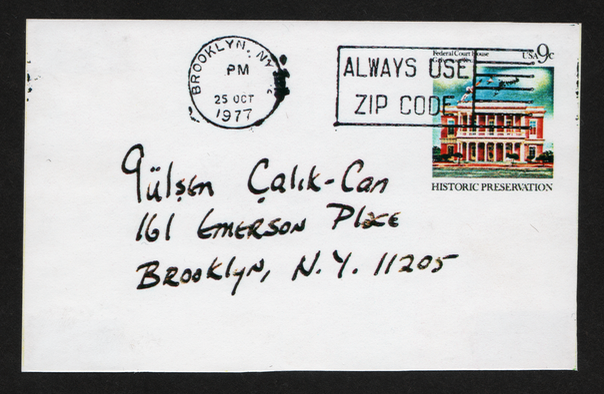 BROOKLYN, NY
PM
25 OCT
1977
ALWAYS USE
ZIP CODE
Federal Court House
USA 9c
HISTORIC PRESERVATION
Gülşen Çalık-Can
161 EMERSON PLACE
BROOKLYN, N.Y. 11205